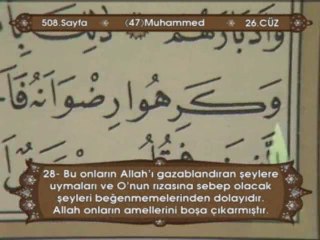 508.Sayfa (47)Muhammed 26.CÜZ
وَأَدْبَارَهُمْ ذَٰلِكَ
وَكَرِهُوا رِضْوَانَهُ فَأَ
28- Bu onların Allah'ı gazablandıran şeylere
uymaları ve O'nun rızasına sebep olacak
şeyleri beğenmemelerinden dolayıdır.
Allah onların amellerini boşa çıkarmıştır.